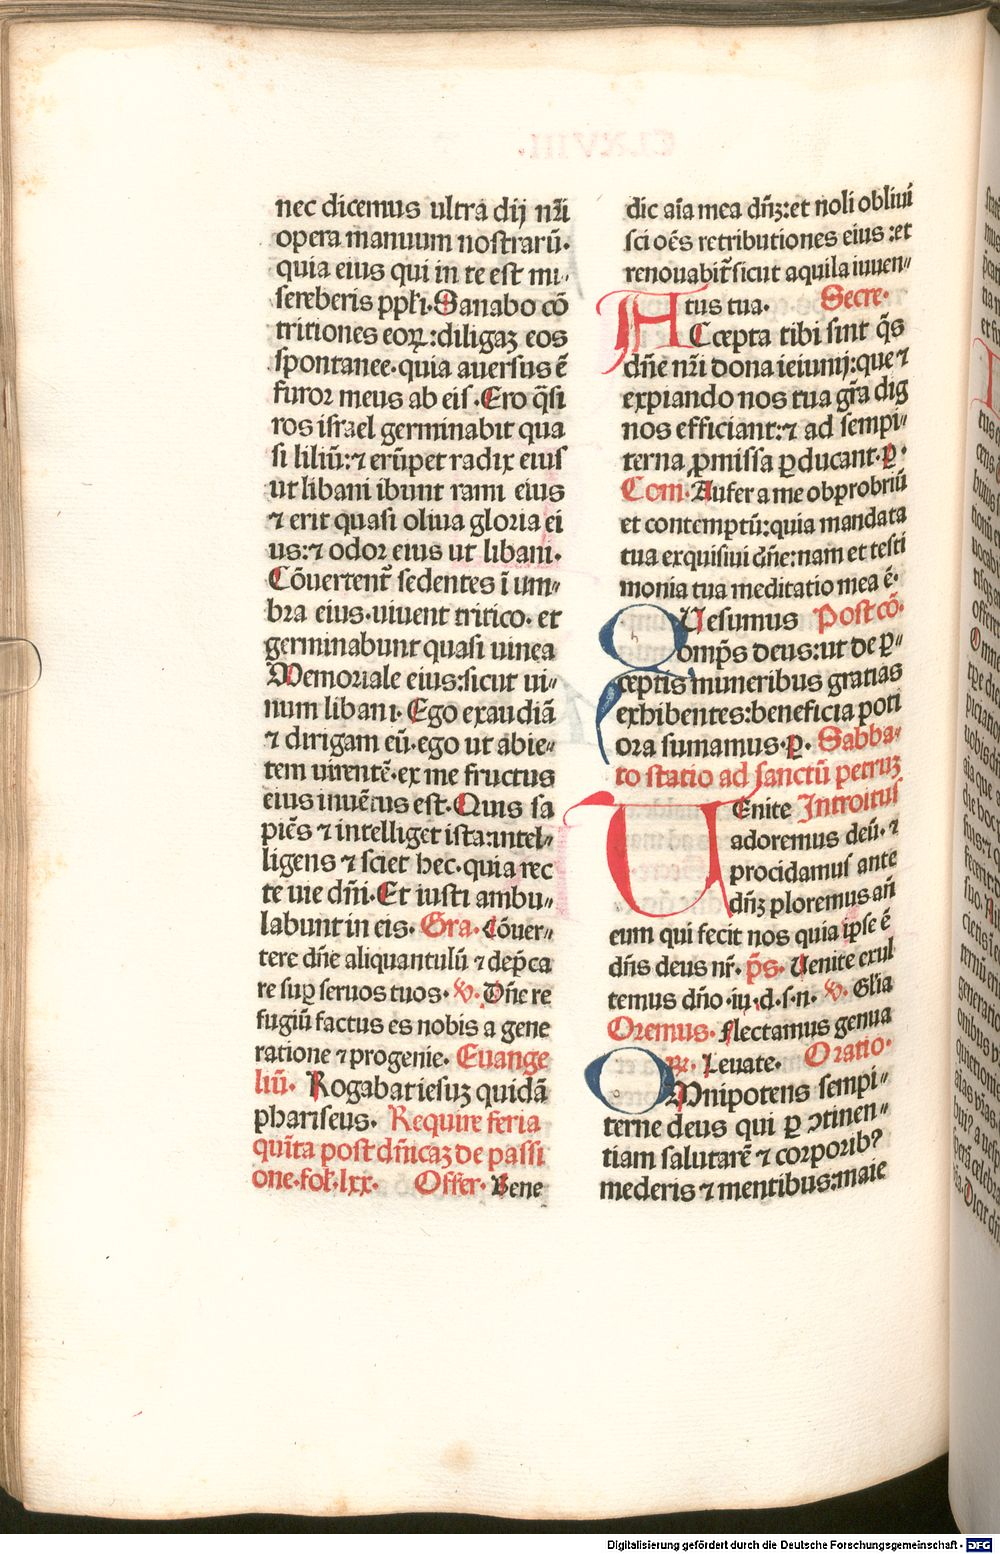 nec dicemus ultra dij nr̃i
opera manuum nostrarũ·
quia eius qui in te est mi·
sereberis ppl̃i·Sanabo cõ
tritiones eoꝝ:diligaꝫ eos
spontanee·quia auersus ẽ
furor meus ab eis·Ero q̃si
ros israel germinabit qua
si liliũ:⁊ erũpet radix eius
ut libani ibunt rami eius
⁊ erit quasi oliua gloria ei
us:⁊ odor eius ut libani·
Cõuertent᷑ sedentes ĩ um⸗
bra eius·uiuent tritico·et
germinabunt quasi uinea
Memoriale eius:sicut ui⸗
num libani·Ego exaudiã
⁊ dirigam eũ·ego ut abie⸗
tem uirentẽ·ex me fructus
eius inuẽtus est·Quis sa
piẽs ⁊ intelliget ista:intel⸗
ligens ⁊ sciet hec·quia rec
te uie dñi·Et iusti ambu⸗
labunt in eis· Gra· Cõuer⸗
tere dñe aliquantulũ ⁊ dep̃ca
re suꝑ seruos tuos· ℣· Dñe re
fugiũ factus es nobis a gene
ratione ⁊ progenie· Euange
liũ· Rogabat iesuꝫ quidã
phariseus· Require feria
quĩta post dñicaꝫ de passi
one·fol̃·lxx· Offer· Bene
dic aĩa mea dñꝫ:et noli obliui
sci oẽs retributiones eius:et
renouabit᷑ sicut aquila iuuen⸗
tus tua· Secre·
ACcepta tibi sint q̃s
dñe nr̃i dona ieiunij:que ⁊
expiando nos tua gr̃a dig
nos efficiant:⁊ ad sempi⸗
terna ꝓmissa ꝑducant·ꝑ·
Com·Aufer a me obprobriũ
et contemptũ:quia mandata
tua exquisiui dñe:nam et testi
monia tua meditatio mea ẽ·
QUesumus Post cõ·
omp̃s deus:ut de ꝑ⸗
ceptis muneribus gratias
exhibentes:beneficia poti
ora sumamus·ꝑ· Sabba⸗
to statio ad sanctũ petruꝫ
UEnite Introitus
adoremus deũ·⁊
procidamus ante
dñꝫ ploremus añ
eum qui fecit nos quia ipse ẽ
dñs deus nr̃· p̃s· Uenite exul
temus dño·iu·d·s·n· ℣· Gl̃ia
Oremus·Flectamus genua
℟· Leuate· Oratio·
OMnipotens sempi⸗
terne deus qui ꝑ ↄtinen⸗
tiam salutarẽ ⁊ corporibꝰ
mederis ⁊ mentibus:maie
Digitalisierung gefördert durch die Deutsche Forschungsgemeinschaft - DFG